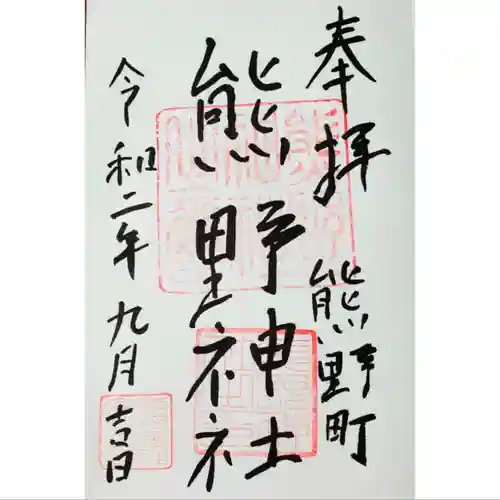 奉拝 熊野町
熊野神社
令和二年九月吉日